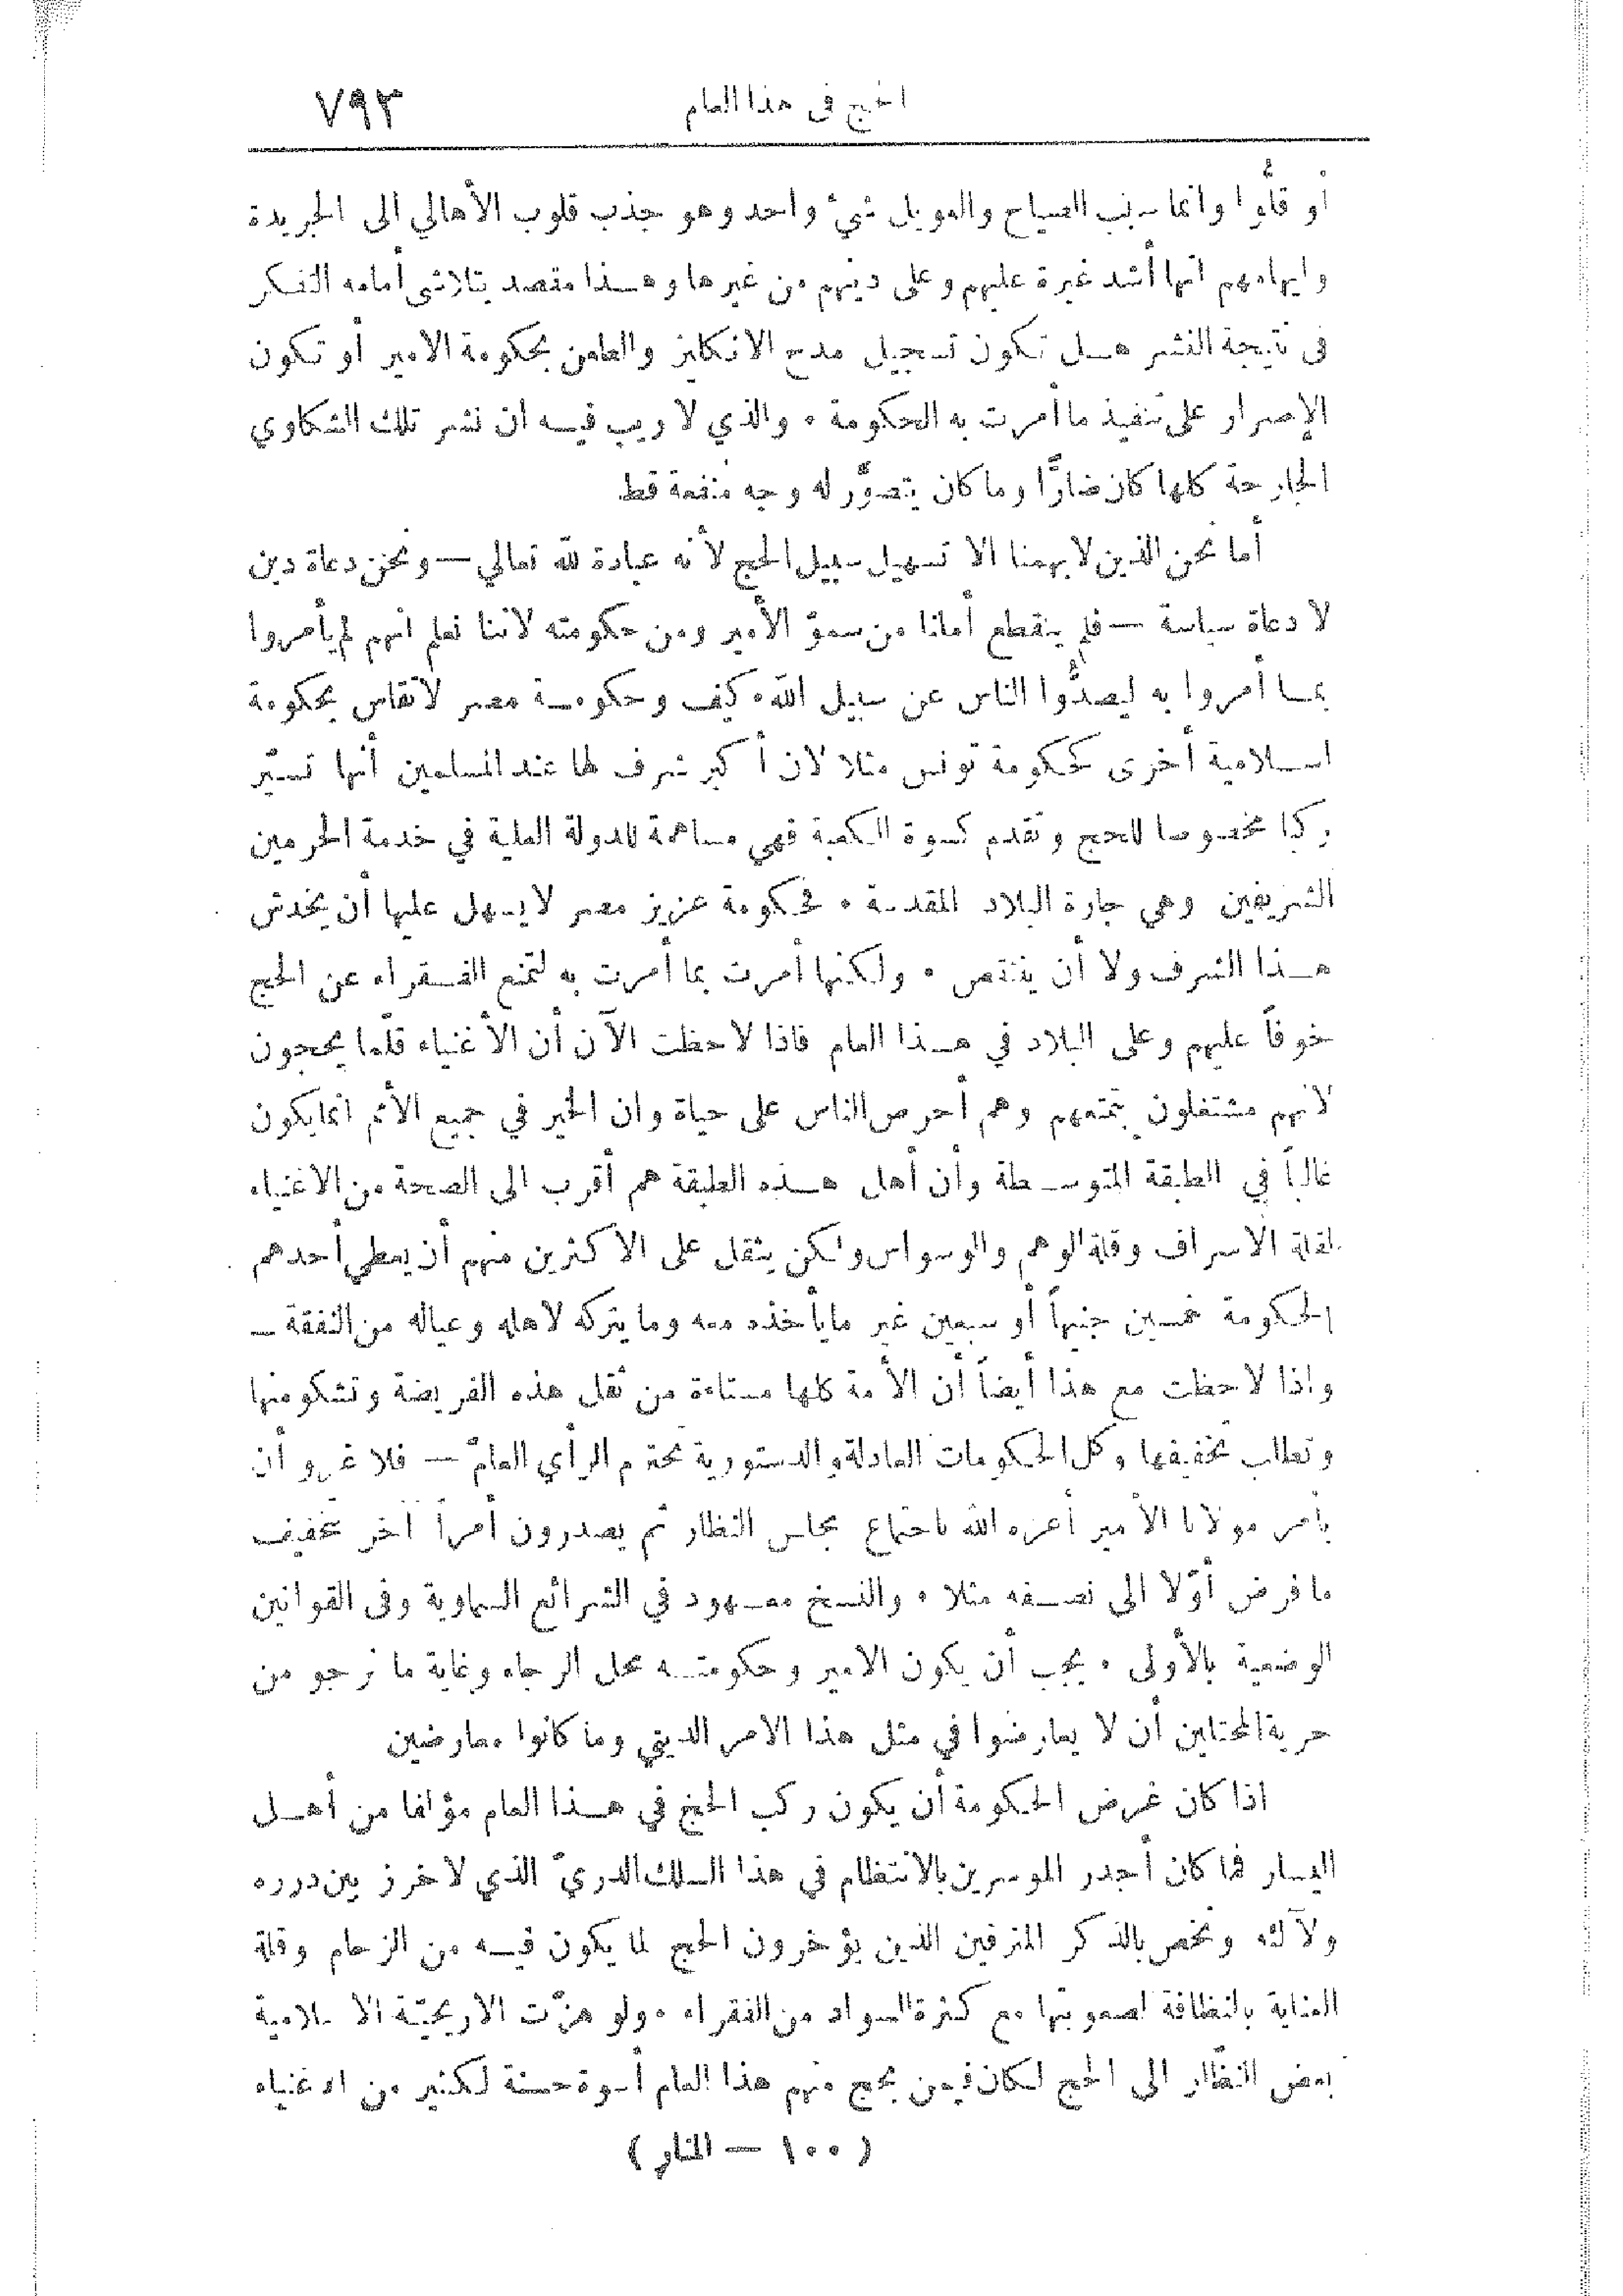 الحج فى هذا العام ٧٩٣
أو قلُّوا وانما سبب الصياح والعويل شيء واحد وهو جذب قلوب الأهالي الى الجريدة
وايهامهم انها أشد غيرة عليهم وعلى دينهم من غيرها وهذا مقصد يتلاشى أمامه الفكر
فى نتيجة النشر هل تكون تسجيل مدح الانكليز والطعن بحكومة الامير أو تكون
الإصرار على تنفيذ ما أمرت به الحكومة ٠ والذي لا ريب فيه ان نشر تلك الشكاوي
الجارحة كلها كان ضارًّا وما كان يتصوَّر له وجه منفعة قط
أما نحن الذين لا يهمنا الا تسهيل سبيل الحج لأنه عبادة لله تعالي — ونحن دعاة دين
لا دعاة سياسة — فلم ينقطع أملنا من سموّ الأمير ومن حكومته لاننا نعلم انهم لم يأمروا
بما أمروا به ليصدُّوا الناس عن سبيل الله ٠ كيف وحكومة مصر لا تقاس بحكومة
اسلامية أخرى كحكومة تونس مثلا لان أكبر شرف لها عند المسلمين أنها تسيّر
ركبا مخصوصا للحج وتقدم كسوة الكعبة فهي مساهمة للدولة العلية في خدمة الحرمين
الشريفين وهي جارة البلاد المقدسة ٠ فحكومة عزيز مصر لا يسهل عليها أن يخدش
هذا الشرف ولا أن ينتقص ٠ ولكنها أمرت بما أمرت به لتمنع الفقراء عن الحج
خوفاً عليهم وعلى البلاد في هذا العام فاذا لاحظت الآن أن الأغنياء قلّما يحجون
لانهم مشتغلون بتمتعهم وهم أحرص الناس على حياة وان الخير في جميع الأمم انما يكون
غالباً في الطبقة المتوسطة وأن أهل هذه الطبقة هم أقرب الى الصحة من الاغنياء
لقلة الاسراف وقلة الوهم والوسواس ولكن يثقل على الاكثرين منهم أن يعطي أحدهم
الحكومة خمسين جنيهاً أو سبعين غير ما يأخذه معه وما يتركه لاهله وعياله من النفقة —
واذا لاحظت مع هذا أيضاً أن الأمة كلها مستاءة من ثقل هذه الفريضة وتشكو منها
وتطلب تخفيفها وكل الحكومات العادلة والدستورية تحترم الرأي العامّ — فلا غرو أن
يأمر مولانا الأمير أعزه الله باجتماع مجلس النظار ثم يصدرون أمراً آخر بتخفيف
ما فرض أوّلا الى نصفه مثلا ٠ والنسخ معهود في الشرائع السماوية وفى القوانين
الوضعية بالأولى ٠ يجب أن يكون الامير وحكومته محل الرجاء وغاية ما نرجو من
حرية المحتلين أن لا يعارضوا في مثل هذا الامر الديني وما كانوا معارضين
اذا كان غرض الحكومة أن يكون ركب الحج في هذا العام مؤلفا من أهل
اليسار فما كان أجدر الموسرين بالانتظام في هذا السلك الدريّ الذي لا خرز بين درره
ولآلئه ونخص بالذكر المترفين الذين يؤخرون الحج لما يكون فيه من الزحام وقلة
العناية بالنظافة لصعوبتها مع كثرة السواد من الفقراء ٠ ولو هزّت الاريحيّة الاسلامية
بعض النظّار الى الحج لكان فيمن يحج منهم هذا العام أسوة حسنة لكثير من الاغنياء
( ١٠٠ — المنار )